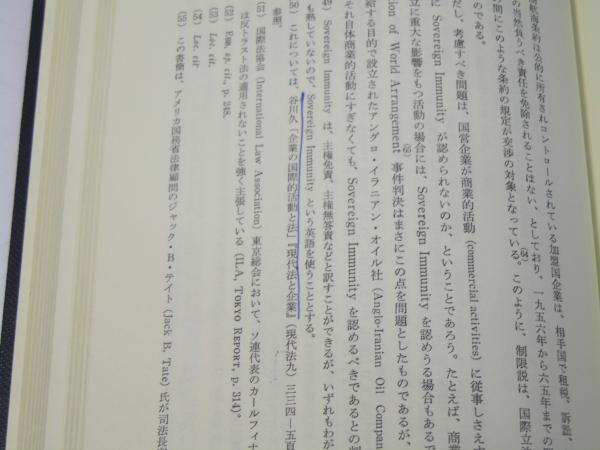 航海条約は公的に所有されコントロールされている加盟国企業は、相手国で租税、訴訟、
の当然負うべき責任を免除されることはない、としており、一九五六年から六五年までの
の間にこのような条約の規定が交渉の対象となっている。(64) このように、制限説は、国際立
のである。
だし、考慮すべき問題は、国営企業が商業的活動 (commercial activities) に従事しさえす
に Sovereign Immunity が認められないのか、ということであろう。たとえば、商業
立に重大な影響をもつ活動の場合には、Sovereign Immunity を認めうる場合もある
tion of World Arrangement (65) 事件判決はまさにこの点を問題としたものであるが、
給する目的で設立されたアングロ・イラニアン・オイル社 (Anglo-Iranian Oil Compan
それ自体商業的活動にすぎなくても、Sovereign Immunity を認めるべきであるとの判
49) Sovereign Immunity は、主権免責、主権無答責などと訳すことができるが、いずれもわが
も熟していないので、Sovereign Immunity という英語を使うこととする。
50) これについては、谷川久「企業の国際的活動と法」『現代法と企業』(現代法九) 三三四―五百
参照。
(51) 国際法協会 (International Law Association) 東京総会において、ソ連代表のカールフィナ
は反トラスト法の適用されないことを強く主張している (ILA, TOKYO REPORT, p. 314)。
(52) cit., p. 248.
Loc. cit.
Loc. cit
(55) この書簡は、アメリカ国務省法律顧問のジャック・B・テイト (Jack B. Tate) 氏が司法長官